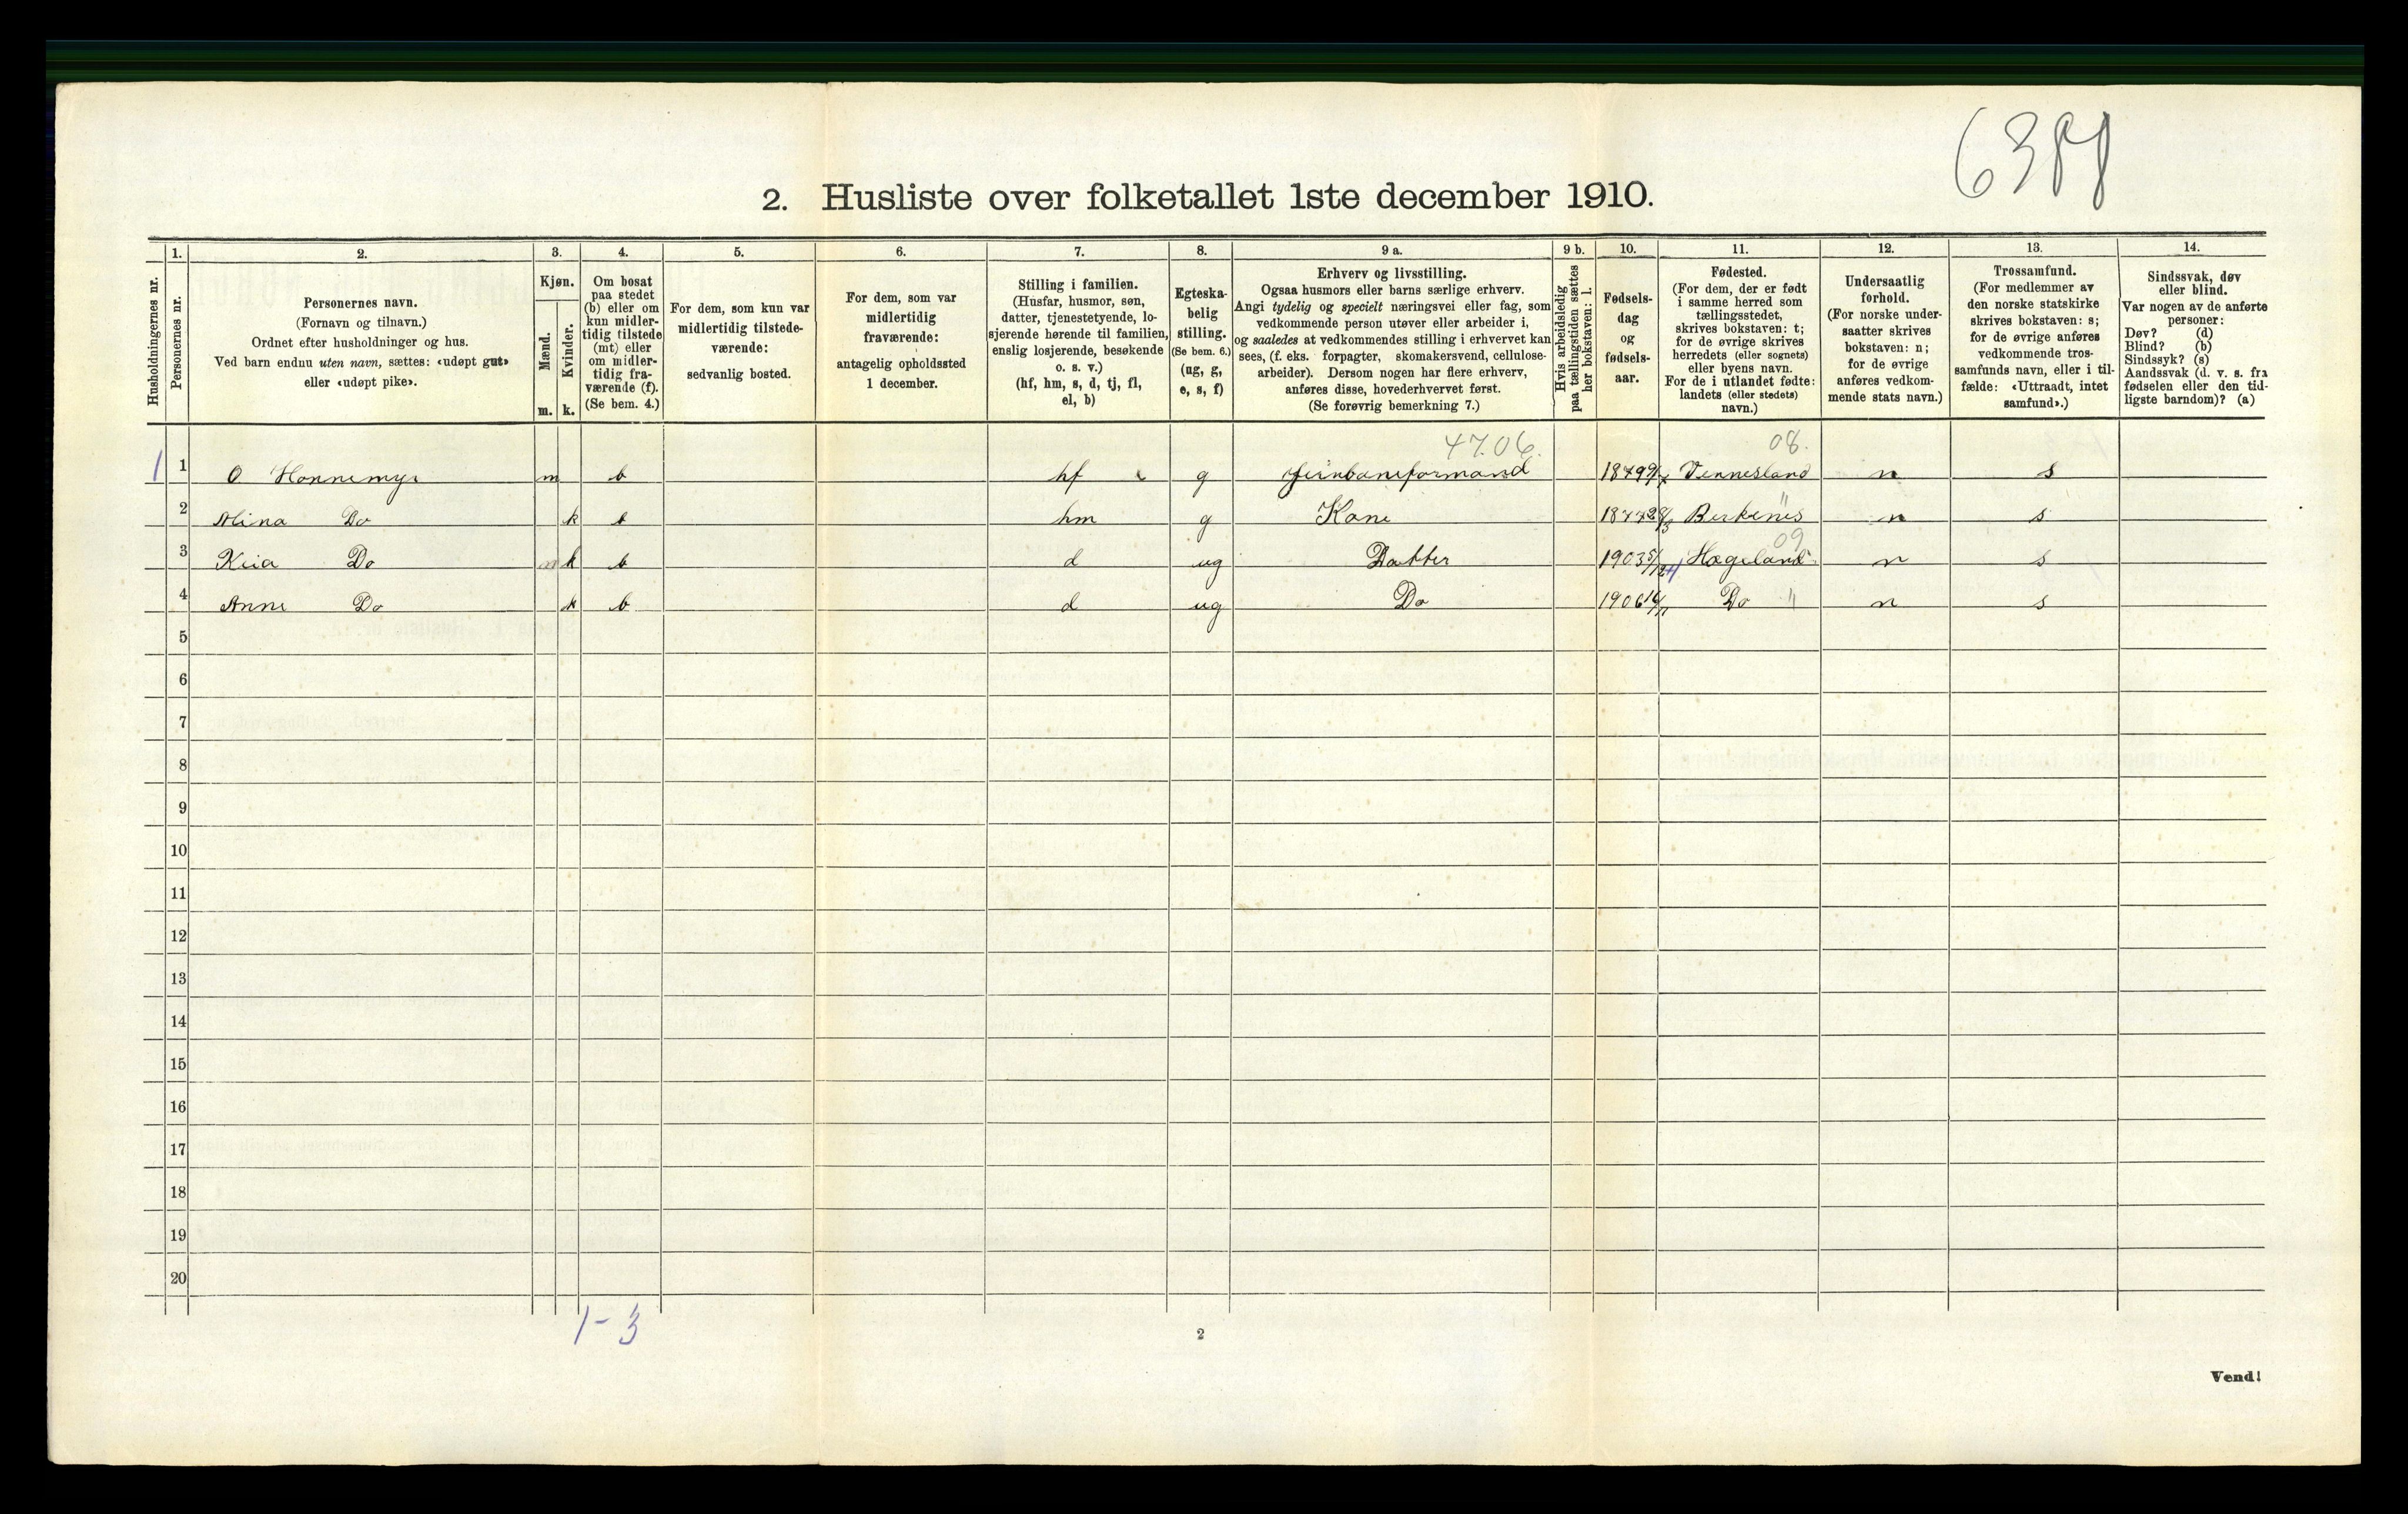 6388
2. Husliste over folketallet 1ste december 1910.
Husholdningernes nr.
1.
Personernes nr.
2.
Personernes navn.
(Fornavn og tilnavn.)
Ordnet efter husholdninger og hus.
Ved barn endnu uten navn, sættes: «udøpt gut»
eller «udøpt pike».
3.
Kjøn.
Mænd.
Kvinder.
m. k.
4.
Om bosat
paa stedet
(b) eller om
kun midler-
tidig tilstede
(mt) eller
om midler-
tidig fra-
værende (f).
(Se bem. 4.)
5.
For dem, som kun var
midlertidig tilstede-
værende:
sedvanlig bosted.
6.
For dem, som var
midlertidig
fraværende:
antagelig opholdssted
1 december.
7.
Stilling i familien.
(Husfar, husmor, søn,
datter, tjenestetyende, lo-
sjerende hørende til familien,
enslig losjerende, besøkende
o. s. v.)
(hf, hm, s, d, tj, fl,
el, b)
8.
Egteska-
belig
stilling.
(Se bem. 6.)
(ug, g,
e, s, f)
9 a.
Erhverv og livsstilling.
Ogsaa husmors eller barns særlige erhverv.
Angi tydelig og specielt næringsvei eller fag, som
vedkommende person utøver eller arbeider i,
og saaledes at vedkommendes stilling i erhvervet kan
sees, (f. eks. forpagter, skomakersvend, cellulose-
arbeider). Dersom nogen har flere erhverv,
anføres disse, hovederhvervet først.
(Se forøvrig bemerkning 7.)
9 b.
Hvis arbeidsledig
paa tællingstiden sættes
her bokstaven: l.
10.
Fødsels-
dag
og
fødsels-
aar.
11.
Fødested.
(For dem, der er født
i samme herred som
tællingsstedet,
skrives bokstaven: t;
for de øvrige skrives
herredets (eller sognets)
eller byens navn.
For de i utlandet fødte:
landets (eller stedets)
navn.)
12.
Undersaatlig
forhold.
(For norske under-
saatter skrives
bokstaven: n;
for de øvrige
anføres vedkom-
mende stats navn.)
13.
Trossamfund.
(For medlemmer av
den norske statskirke
skrives bokstaven: s;
for de øvrige anføres
vedkommende tros-
samfunds navn, eller i til-
fælde: «Uttraadt, intet
samfund».)
14.
Sindssvak, døv
eller blind.
Var nogen av de anførte
personer:
Døv? (d)
Blind? (b)
Sindssyk? (s)
Aandssvak (d. v. s. fra
fødselen eller den tid-
ligste barndom)? (a)
47.06. 08.
1 1 O Honnemyr m b hf g Jernbaneformand 1879 Vennesland n s
2 Alina Do k b hm g Kone Birkenes " n s
09
3 Do k b d ug Datter 1903 5/12 Hægeland n s
4 Anne Do k b d ug Do 1906 16/11 Do " n s
5
6
7
8
9
10
11
12
13
14
15
16
17
18
19
20
1-3
2
Vend!